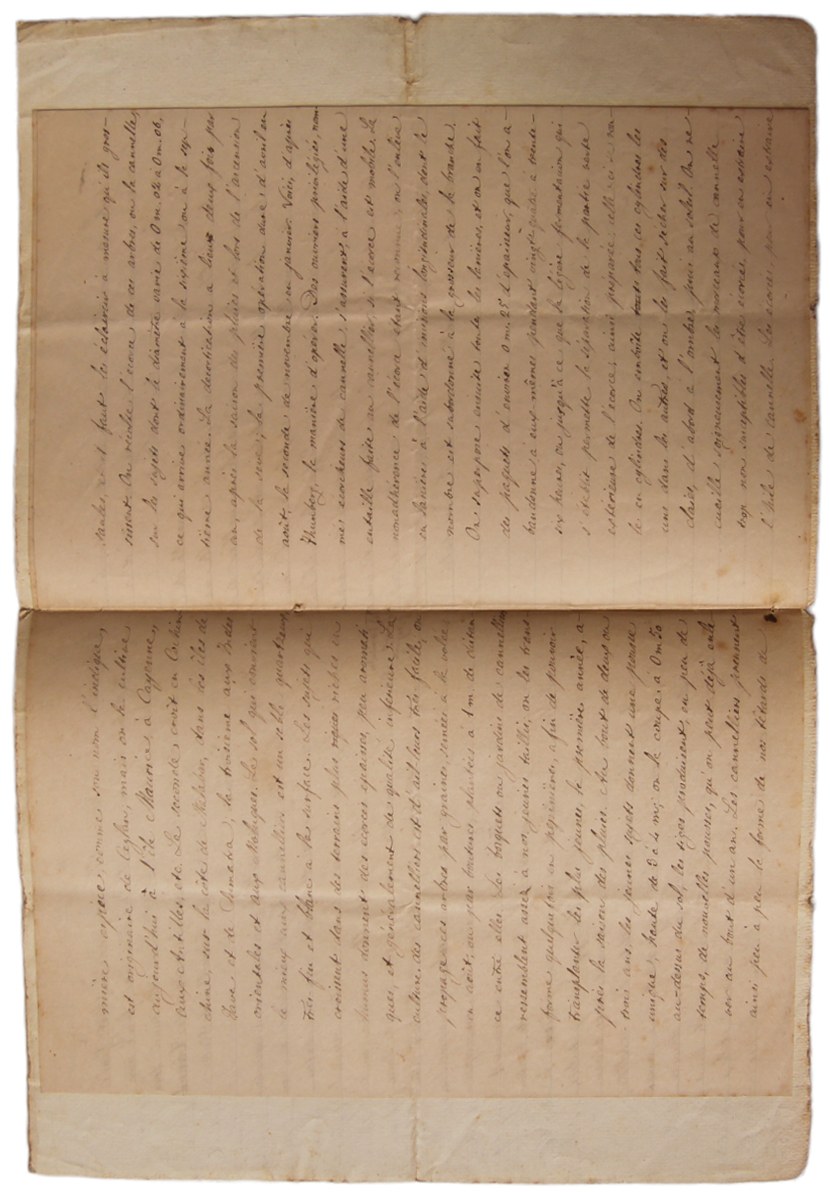 mière espèce, comme son nom l'indique,
est originaire de Ceylan, mais on la cultive
aujourd'hui à l'île Maurice, à Cayenne,
aux Antilles, etc. La seconde croît en Cochin
chine, sur la côte de Malabar, dans les îles de
Java et de Sumatra; la troisième aux Indes
orientales et aux Moluques. Le sol qui convient
le mieux aux cannelliers est un sable quartzeux
très fin et blanc à la surface. Les sujets qui
croissent dans des terrains plus riches en
humus donnent des écorces épaisses, peu aromati
ques, et généralement de qualité inférieure. La
culture des cannelliers est d'ailleurs très facile, on
propage ces arbres par graines, semées à la volée
en août, ou par boutures plantées à 1m de distan
ce entre elles. Les bosquets ou jardins de cannelliers
ressemblent assez à nos jeunes taillis, on les trans-
forme quelquefois en pépinières, afin de pouvoir
transplanter les plus jeunes, la première année, a
près la saison des pluies. Au bout de deux ou
trois ans les jeunes sujets donnent une pousse
unique, haute de 3 à 4 m; on la coupe à 0m50
au-dessus du sol, les tiges produisent, en peu de
temps, de nouvelles pousses, qu'on peut déjà enle
ver au bout d'un an. Les cannelliers prennent
ainsi peu à peu la forme de nos têtards de
saules, et il faut les éclaircir à mesure qu'ils gros-
sissent. On récolte l'écorce de ces arbres, ou la cannelle,
sur les sujets dont le diamètre varie de 0m,02 à 0m,06,
ce qui arrive ordinairement à la sixième ou à la sep-
tième année. La décortication a lieu deux fois par
an, après la saison des pluies et lors de l'ascension
de la sève; la première opération dure d'avril en
août, la seconde de novembre en janvier. Voici, d'après
Thunberg, la manière d'opérer. Des ouvriers privilégiés, nom
més écorcheurs de cannelle, s'assurent, à l'aide d'une
entaille faite au cannellier, si l'écorce est mobile. La
nonadhérence de l'écorce étant reconnue, on l'enlève
en lanières à l'aide d'incisions longitudinales, dont le
nombre est subordonné à la grosseur de la branche.
On superpose ensuite toutes les lanières, et on en fait
des paquets d'environ 0m,25 d'épaisseur, que l'on a-
bandonne à eux-mêmes pendant vingt-quatre à trente-
six heures, ou jusqu'à ce que la légère fermentation qui
s'établit permette la séparation de la partie verte
extérieure de l'écorce; ainsi préparée celle-ci se rou
le en cylindres. On emboîte tous ces cylindres les
uns dans les autres, et on les fait sécher sur des
claies, d'abord à l'ombre, puis au soleil. On re-
cueille soigneusement les morceaux de cannelle
trop non susceptibles d'être écorcés, pour en extraire
l'huile de cannelle. Les écorces pour en extraire